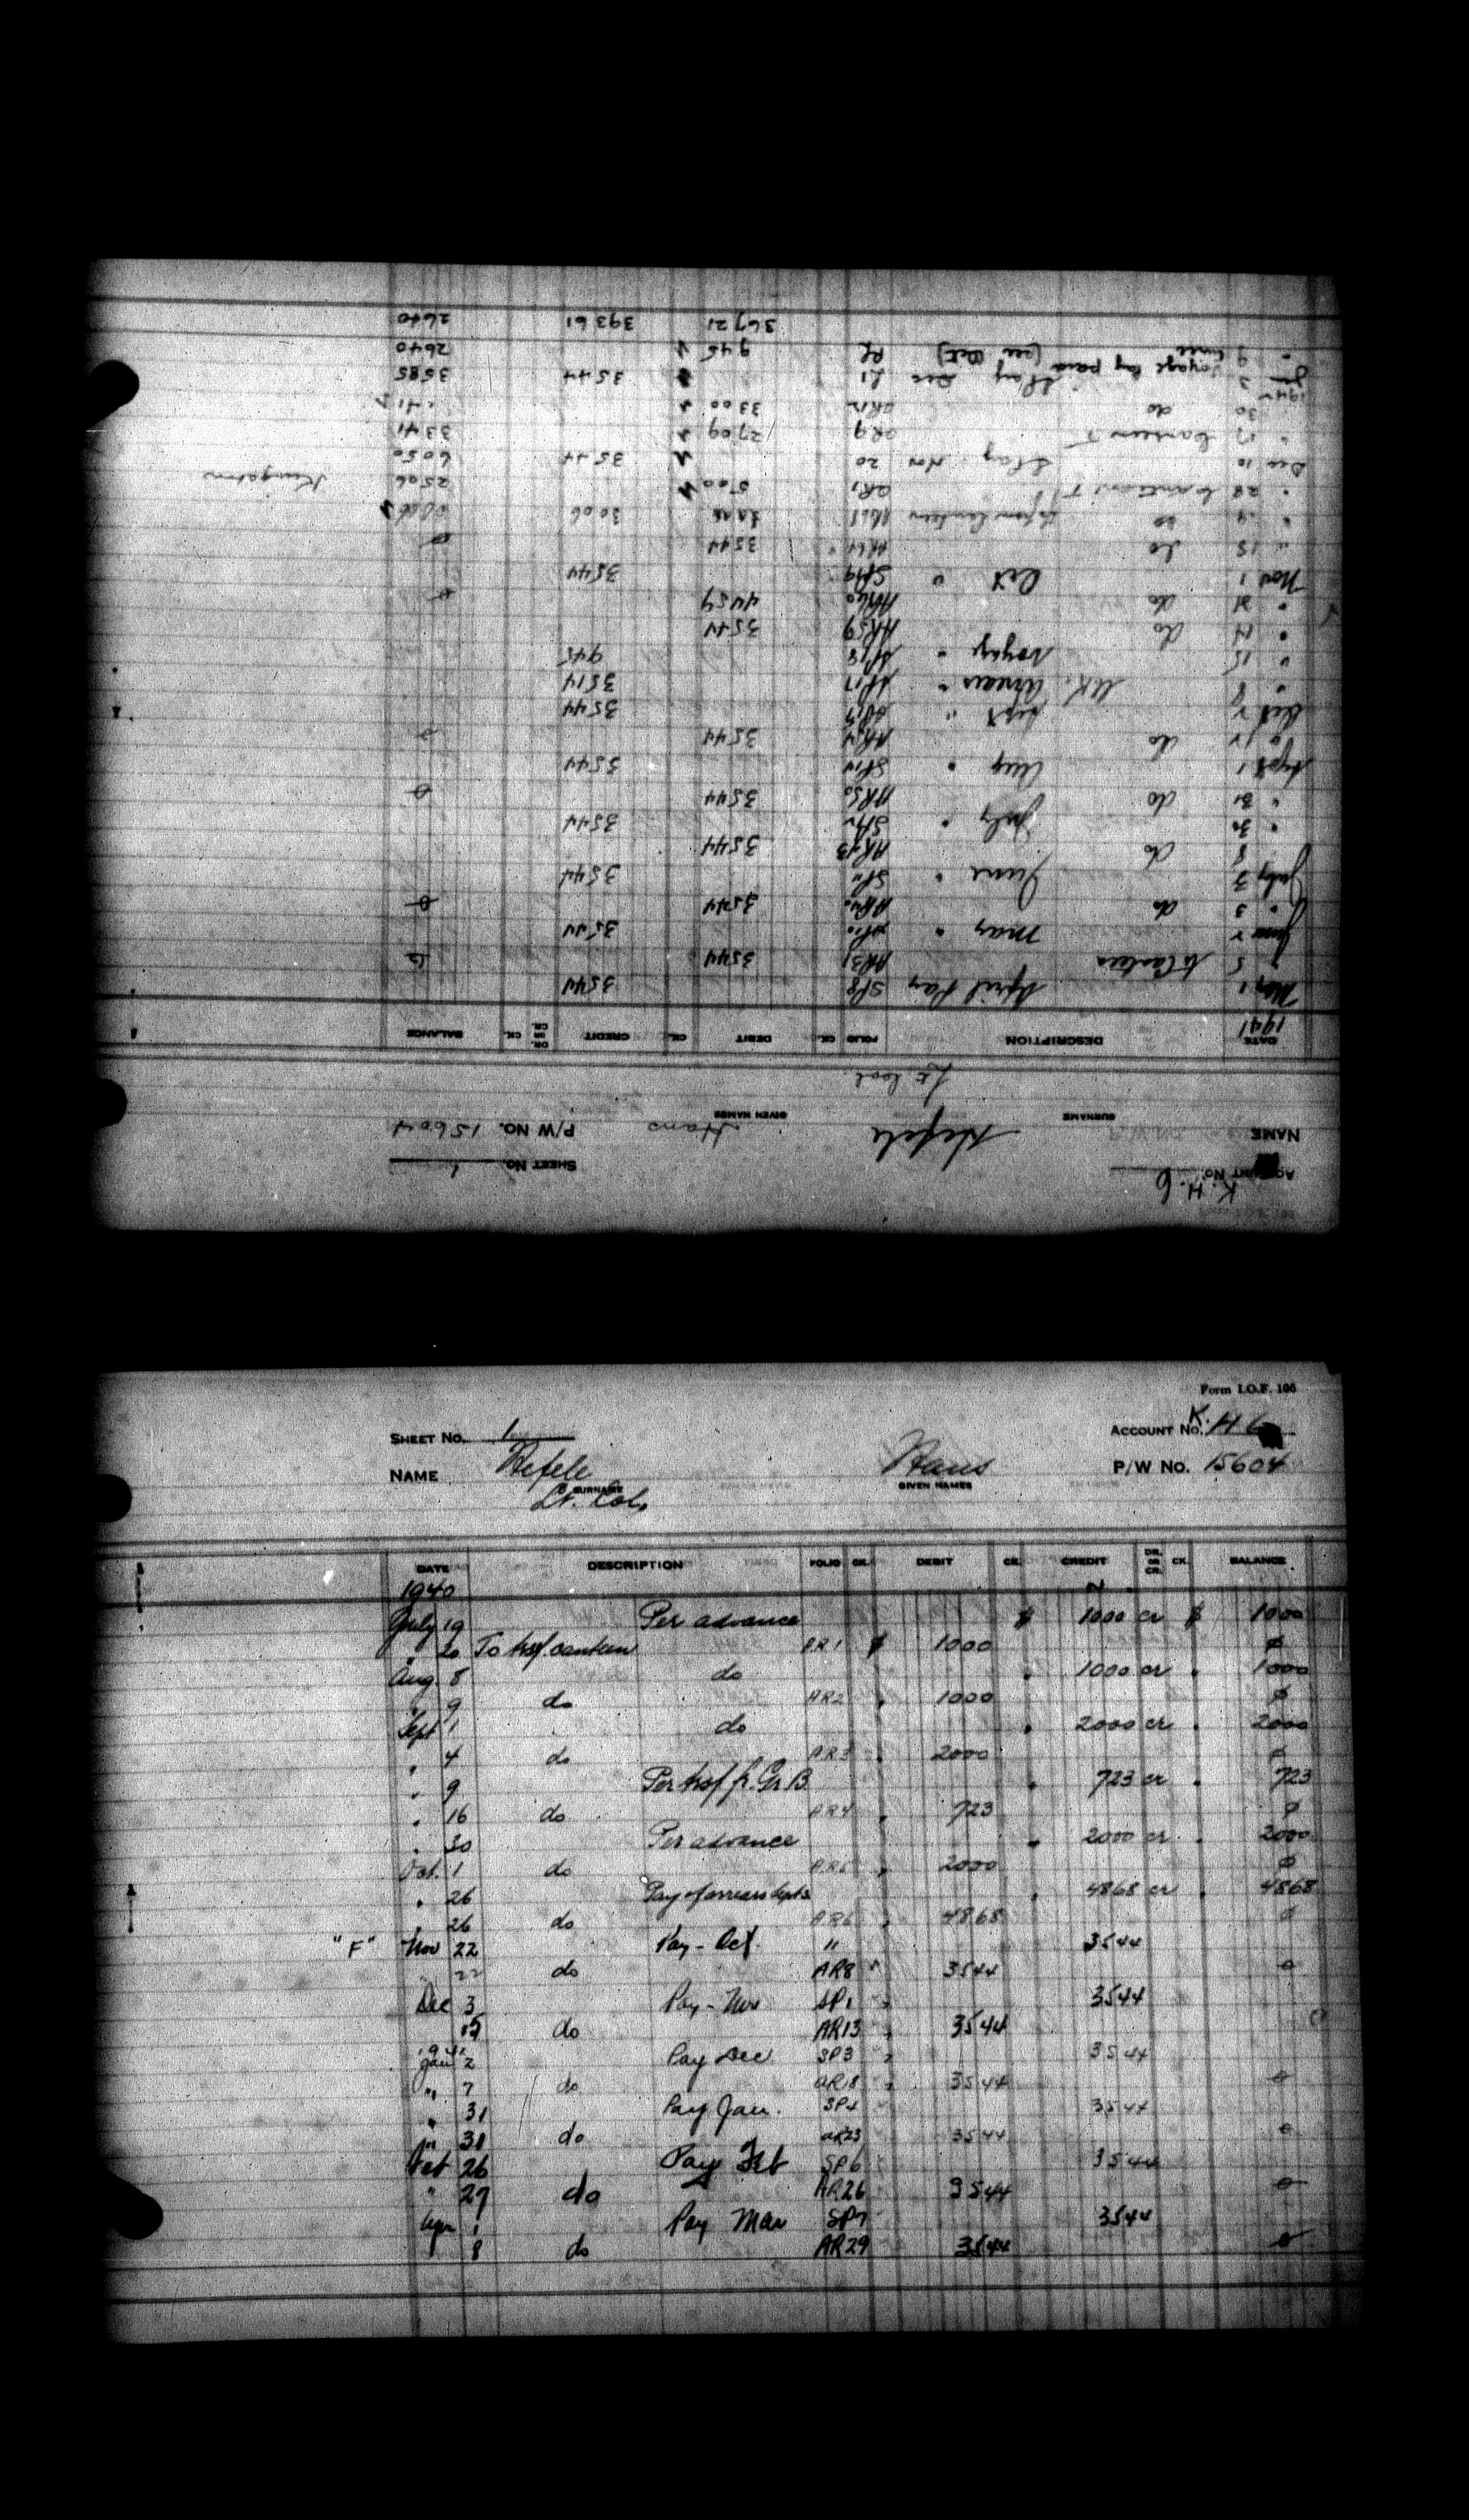 Form I.O.F. 106
SHEET No. 1 ACCOUNT No. K. H 6
NAME Hefele Hans P/W No. 15604
SURNAME GIVEN NAMES
Lt. Col.
DATE DESCRIPTION FOLIO CK. DEBIT CK. CREDIT DR. OR CR. CK. BALANCE
1940
July 19 Per advance $ 1000 cr $ 1000
" 20 To trsf. canteen AR1 $ 1000 ø
Aug. 8 do " 1000 cr " 1000
" 9 do AR2 " 1000 ø
Sept 1 do " 2000 cr " 2000
" 4 do AR3 " 2000 ø
" 9 Per trsf fr. Gr B. " 723 cr " 723
" 16 do AR4 " 723 ø
" 30 Per advance " 2000 cr " 2000
Oct. 1 do AR5 " 2000 ø
" 26 Pay of arrears Sept " 4868 cr " 4868
" 26 do AR6 " 4868 ø
"F" Nov 22 Pay - Oct. " 3544
" 22 do AR8 " 3544 ø
Dec 3 Pay - Nov SP1 3544
15 do AR13 3544
1941
Jan 2 Pay Dec SP3 3544
" 7 do AR18 3544 ø
" 31 Pay Jan. SP4 3544
" 31 do AR23 3544 ø
Feb 26 Pay Feb SP6 3544
" 27 do AR26 3544 ø
Apr 1 Pay Mar SP7 3544
8 do AR29 3544 ø
ACCOUNT No. K. H. 6 SHEET No. 1
NAME Hefele Hans P/W No. 15604
SURNAME GIVEN NAMES
Lt Col.
DATE DESCRIPTION FOLIO CK. DEBIT CK. CREDIT DR. OR CR. CK. BALANCE
1941
May 1 April Pay SP8 3544
" 5 to Canteen AR31 3544 ø
June 2 May " SP10 3544
" 3 do AR40 3544 ø
July 3 June " SP11 3544
" 8 do AR43 3544
" 30 July " SP12 3544
" 31 do AR50 3544 ø
Sept 1 Aug " SP14 3544
" 12 do AR54 3544 ø
Oct 2 Sept " 3544
" 8 U.K. Arrears " SP17 3514
" 15 Voyage " SP18 945
" 14 do AR59 3544
" 21 do AR60 4459 ø
Nov 1 Oct " SP19 3544
" 15 do AR64 3544 ø
" 24 do trfrom canteen 3006
" 28 Canteen T AR1 500 2506 Kingston
Dec 10 Pay Nov 20 3544 6050
" 17 Canteen T AR9 2709 3341
30 do AR12 3300 41
1942
Jan 3 Pay Dec L1 3544 3585
" 9 Voyage pay paid (see Oct) 945 2640
36721 39361 2640